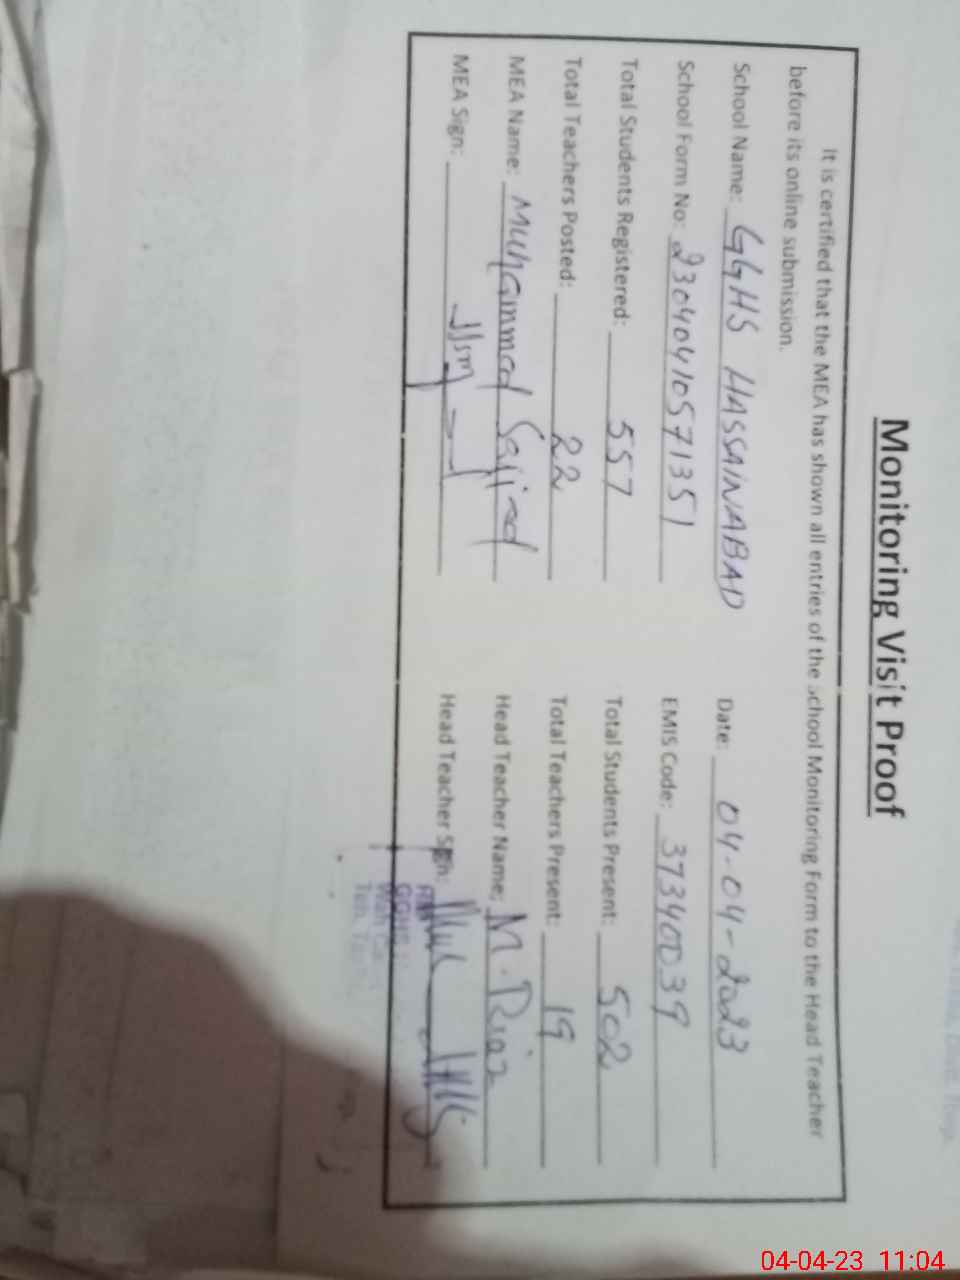 Monitoring Visit Proof
It is certified that the MEA has shown all entries of the School Monitoring Form to the Head Teacher
before its online submission.
School Name: GGHS HASSAINABAD Date: 04-04-2023
School Form No: 23040410571351 EMIS Code: 37340039
Total Students Registered: 557 Total Students Present: 502
Total Teachers Posted: 22 Total Teachers Present: 19
MEA Name: Muhammad Sajjad Head Teacher Name: M. Riaz
MEA Sign: Head Teacher Sign:
04-04-23 11:04